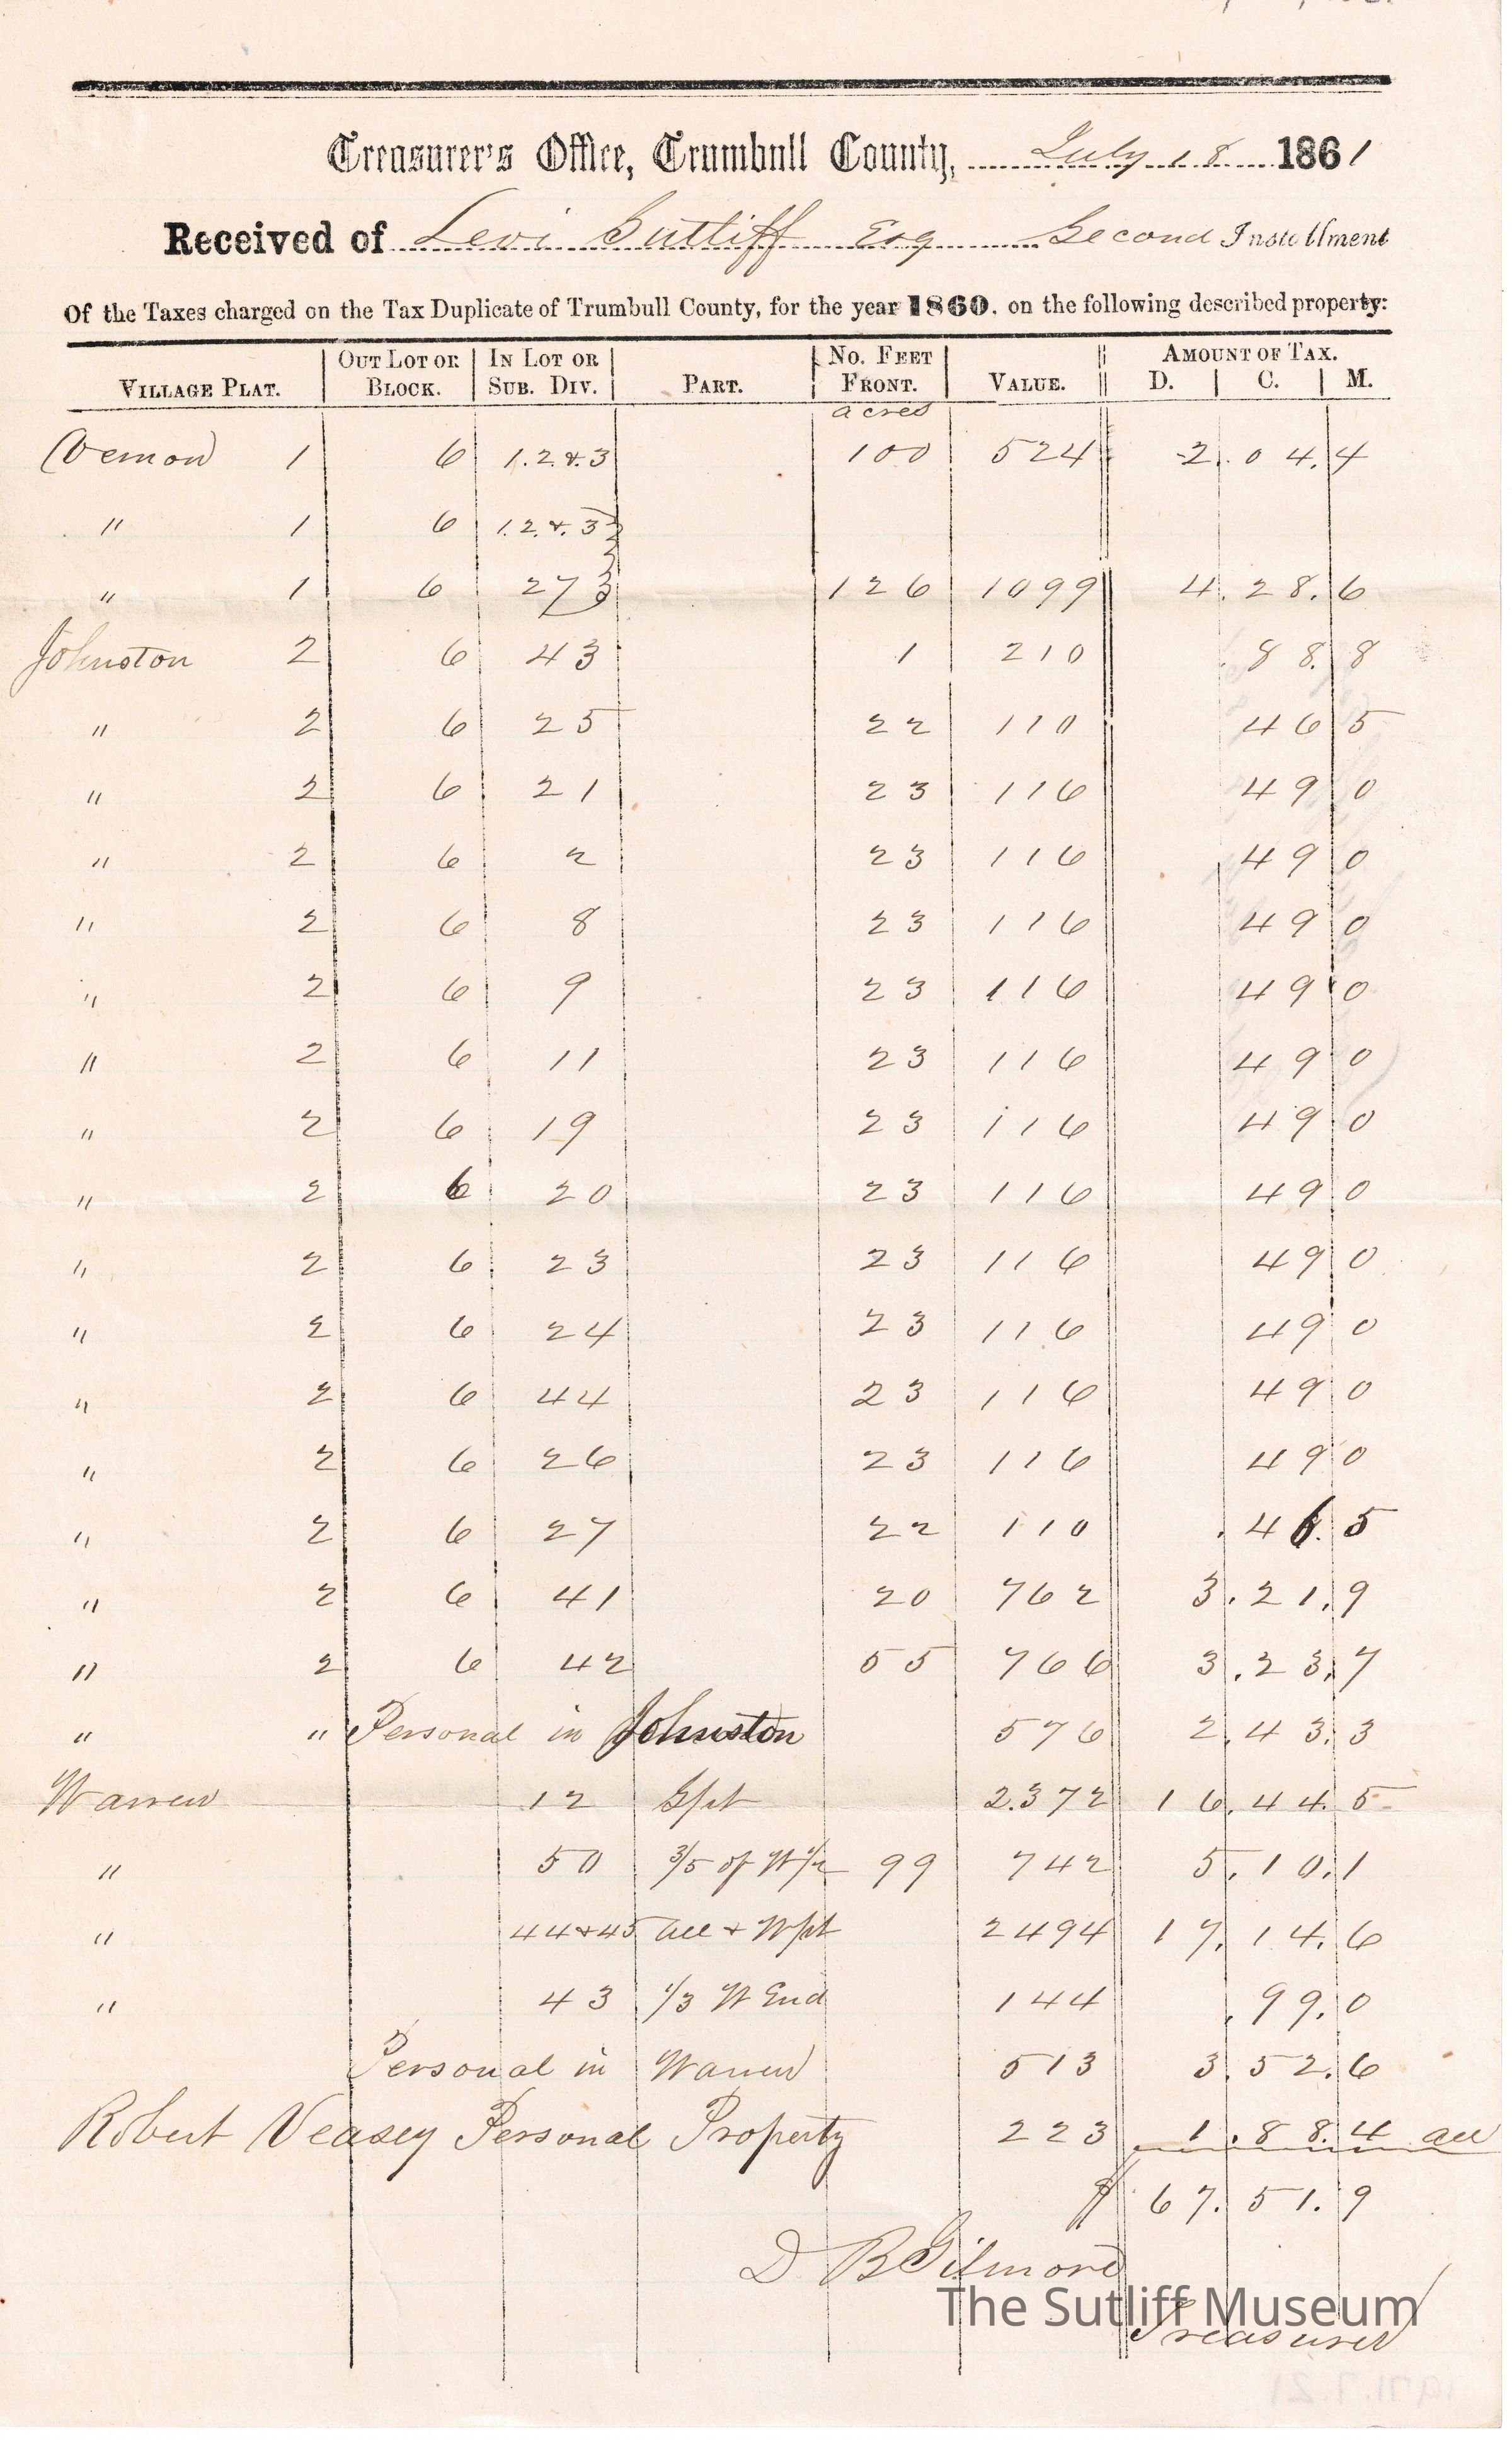 Treasurer's Office, Trumbull County, July 18 1861
Received of Levi Sutliff Esq Second Installment
Of the Taxes charged on the Tax Duplicate of Trumbull County, for the year 1860. on the following described property:
VILLAGE PLAT. | OUT LOT OR BLOCK. | IN LOT OR SUB. DIV. | PART. | NO. FEET FRONT. | VALUE. | AMOUNT OF TAX. D. | C. | M.
acres
Vernon 1 6 1.2.&.3 100 524 2.04.4
" 1 6 1.2.&.3
" 1 6 27 126 1099 4.28.6
Johnston 2 6 43 1 210 .88.8
" 2 6 25 22 110 46 5
" 2 6 21 23 116 49 0
" 2 6 2 23 116 49 0
" 2 6 8 23 116 49 0
" 2 6 9 23 116 49 0
" 2 6 11 23 116 49 0
" 2 6 19 23 116 49 0
" 2 6 20 23 116 49 0
" 2 6 23 23 116 49 0
" 2 6 24 23 116 49 0
" 2 6 44 23 116 49 0
" 2 6 26 23 116 49 0
" 2 6 27 22 110 .46.5
" 2 6 41 20 762 3.21.9
" 2 6 42 55 766 3.23.7
" " Personal in Johnston 576 2.43.3
Warren 12 Spt 2.372 16.44.5
" 50 3/5 of W 1/2 99 742 5.10.1
" 44+45 all + Wpt 2494 17.14.6
" 43 1/3 W End 144 .99.0
Personal in Warren 513 3.52.6
Robert Veasey Personal Property 223 1.88.4 all
$ 67.51.9
D B Gilmore
The Sutliff Museum
Treasurer